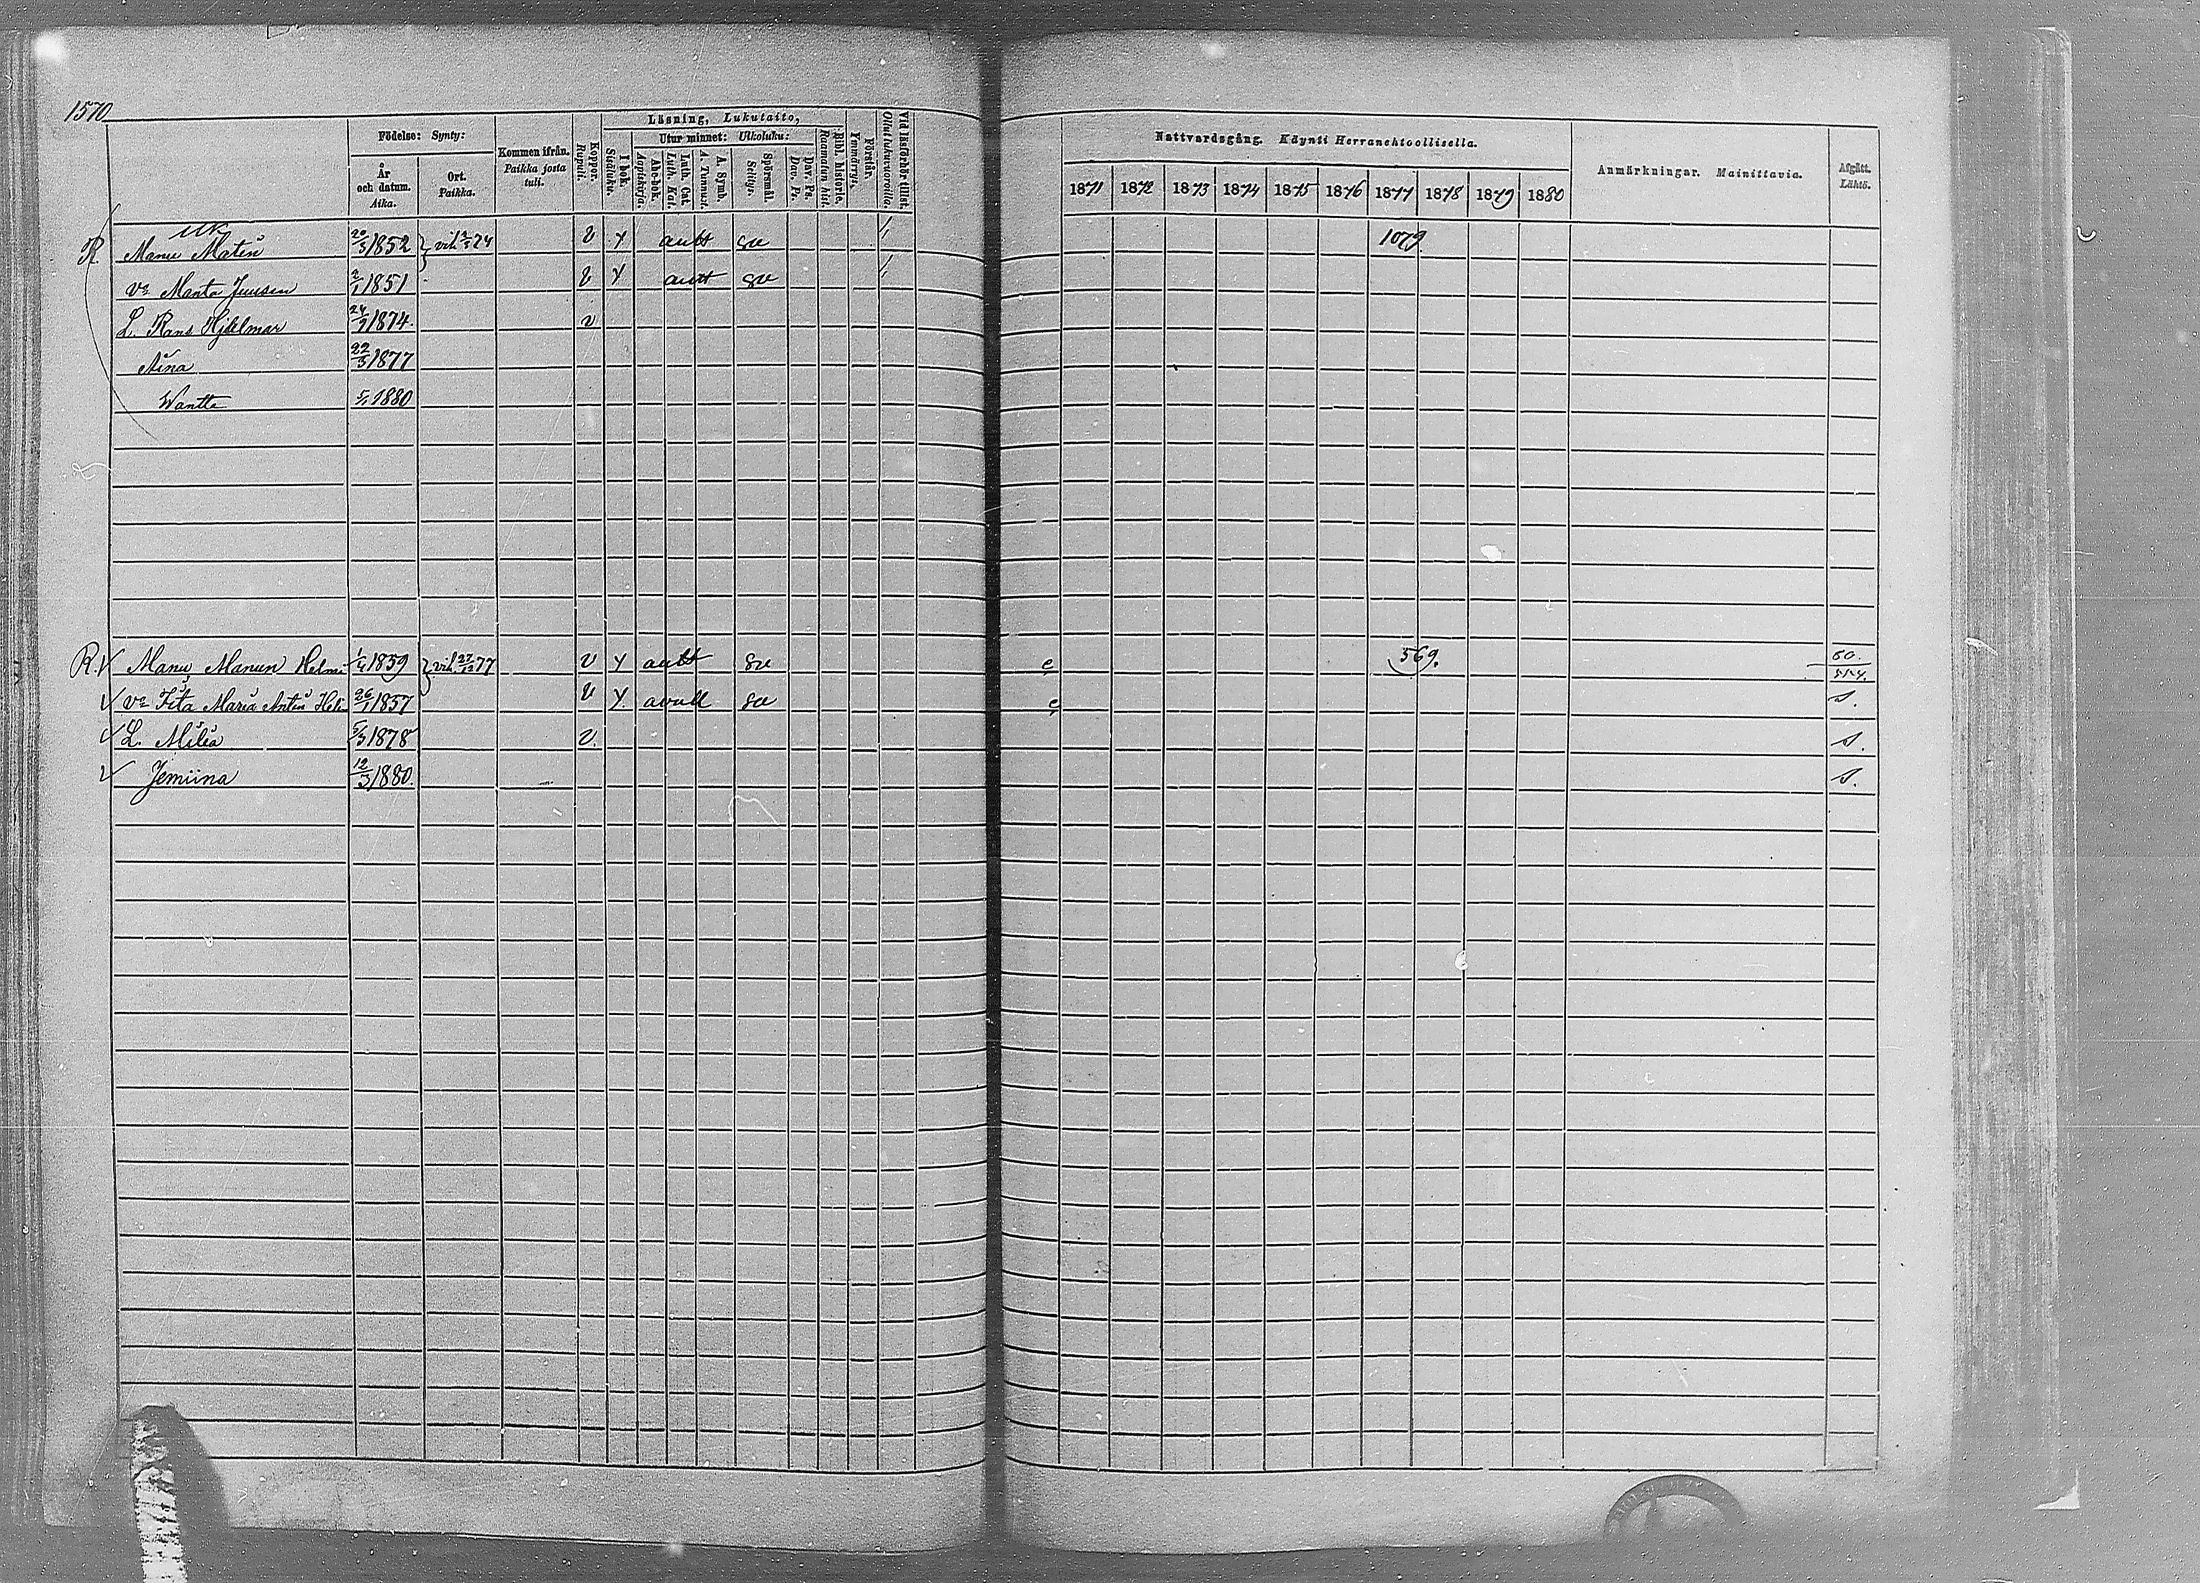 1570
Födelse: Synty:
År och datum. Aika.
Ort. Paikka.
Kommen ifrån. Paikka josta tuli.
Koppor. Rupuli.
Läsning, Lukutaito,
I bok. Sisäluku.
Utur minnet: Ulkoluku:
Abc-bok. Aapiskirja.
Luth. Cat. Luth. Kat.
A. Symb. A. Tunnust.
Spörsmål. Selitys.
Dav. Ps. Dav. Ps.
Bibl. historie. Raamatun hist.
Förstår, Ymmärrys.
Vid läsförhör tillst. Ollut lukuvuorolla.
Nattvardsgång. Käynti Herranehtoollisella.
1871 1872 1873 1874 1875 1876 1877 1878 1879 1880
Anmärkningar. Mainittavia.
Afgått. Lähtö.
R. Manu Matin 20/5 1852 vih 74 v y autt sv 1079
Va Manta Juusen 2/1 1851 v y autt sv
L. Frans Hjalmar 1874. v
Aina 22/3 1877
Wantte 1880
R. Manu Manun 1/4 1859 vih. 27/12 77 v y autt sv e 569. 80.
Va Fita Maria Antin 26/1 1857 v y. sv e s.
L. Milia 5/3 1878 v. s.
Jemiina 12/3 1880. s.